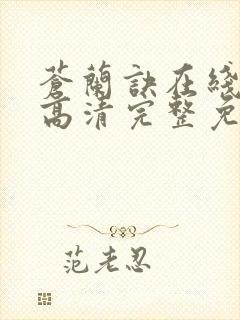 蒼蘭訣在綫
高清完整免
范老忍